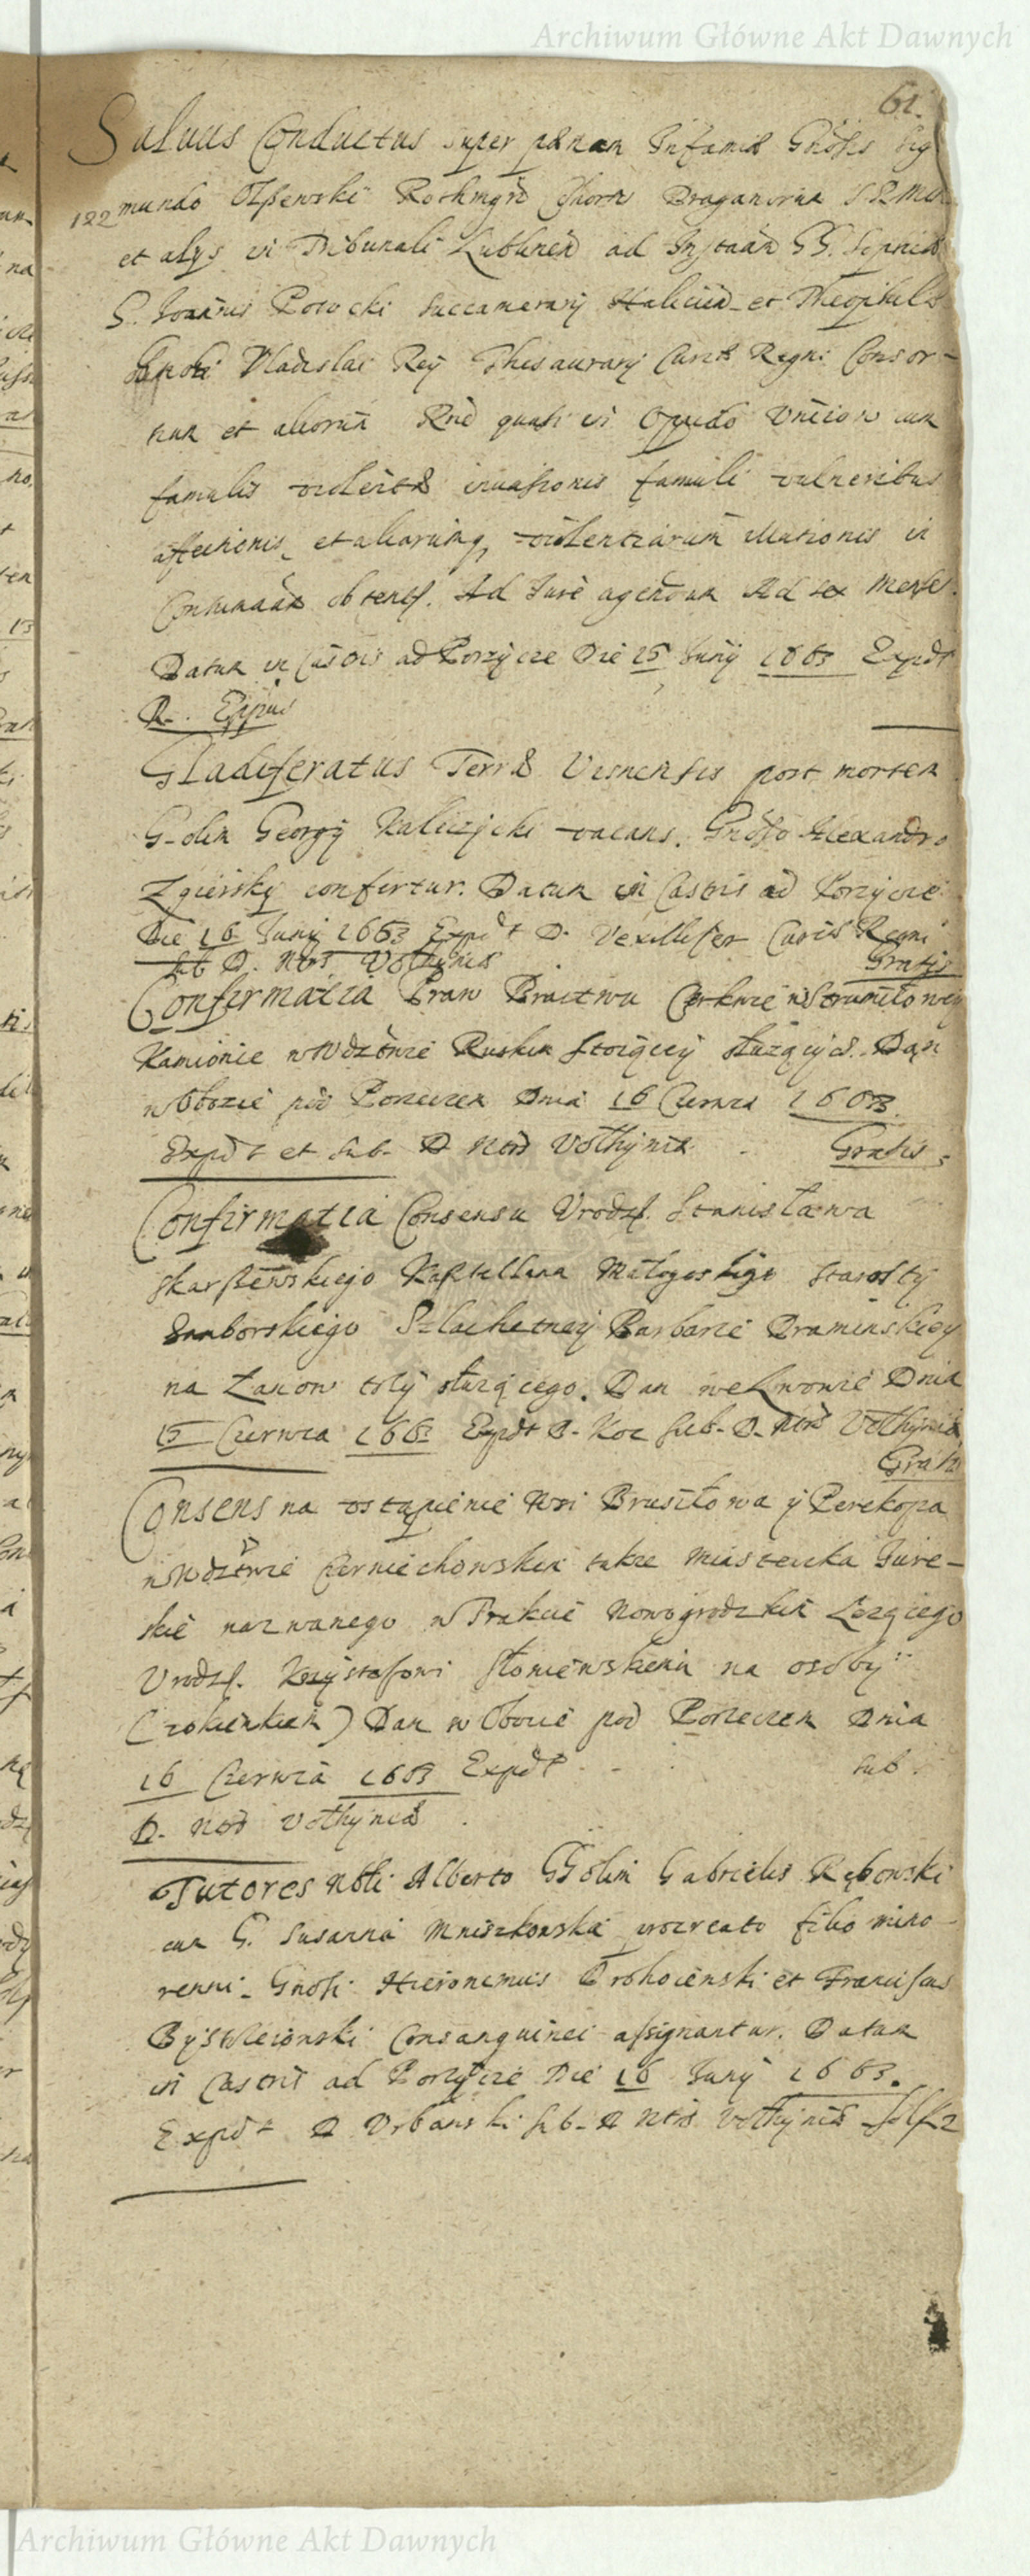 Archiwum Główne Akt Dawnych
61.
Salvus Conductus super pænam Infamiæ Gnosis Sig
122 mundo Olszewski Rothmgro Chorn
et alys in Tribunali Lublinen ad Instaan GG.
G. Joannis Potocki Succamerarÿ Haliciën et Theophilæ
Vladislai Reÿ Thesaurarÿ Curiæ Regni Consor-
tum et aliorum Rne quasi in Opido Uniiow cum
famulis violentæ invasionis famuli vulneribus
affectionis et aliarumq, violentiarum illationis in
Contumaam obtent. Ad Jure agendum Ad sex Menses.
Datum in Castris ad Porzycze Die 15 Junÿ 1663 Expdt
R. Eppus
Gladiferatus Terræ Visnensis post mortem
G-olim Georgÿ Kaliczycki vacans. Gnoso Alexandro
Zgierskÿ confertur. Datum in Castris ad Porzycze
Die 16 Junÿ 1663 Expdt D. Vexillifer Curiæ Regni
sub D. Notÿ Volhyniæ Gratis
Confirmatia Praw Bractwu Cerkwie w Strumiłowey
Kamionie w Wdztwie Ruskim stoiącey służących. Dan
w Obozie pod Porzeczem Dnia 16 Czerwca 1663
Expdt et sub. D Notÿ Volhyniæ - Gratis
Confirmatia Consensu Urodz. Stanisława
Skarszewskiego Kasztellana Małogoskiego Starosty
Samborskiego Szlachetney Barbarze Draminskiey
na Łanow tczÿ służącego. Dan we Lwowie Dnia
15 Czerwca 1663 Expdt D. Koc sub. D. Ntrÿ Volhyniæ
Gratis
Consens na ostąpienie Wsi Brusiłowa ÿ Perekopa
w Wdztwie Czerniechowskim także Miasteczka Jure-
skie nazwanego w Trakcie Nowogrodzkim Leżącego
Urodz. Krzÿsztofowi Słoniewskiemu na osoby
( ) Dan w Obozie pod Porzeczem Dnia
16 Czerwca 1663 Expdt - - . sub.
D. Notÿ Volhyniæ .
Tutores Nbli Alberto GGolim Gabrielis Rębowski
cum G. Susanna Mniszkowska procreato filio mino-
renni. Gnosi Hieronimus Drohoiewski et Franciscus
Consanguinei assignantur. Datum
in Castris ad Porzÿcze Die 16 Junÿ 1663.
Expdt D Urbanski sub. D Ntrÿ Volhyniæ
Archiwum Główne Akt Dawnych